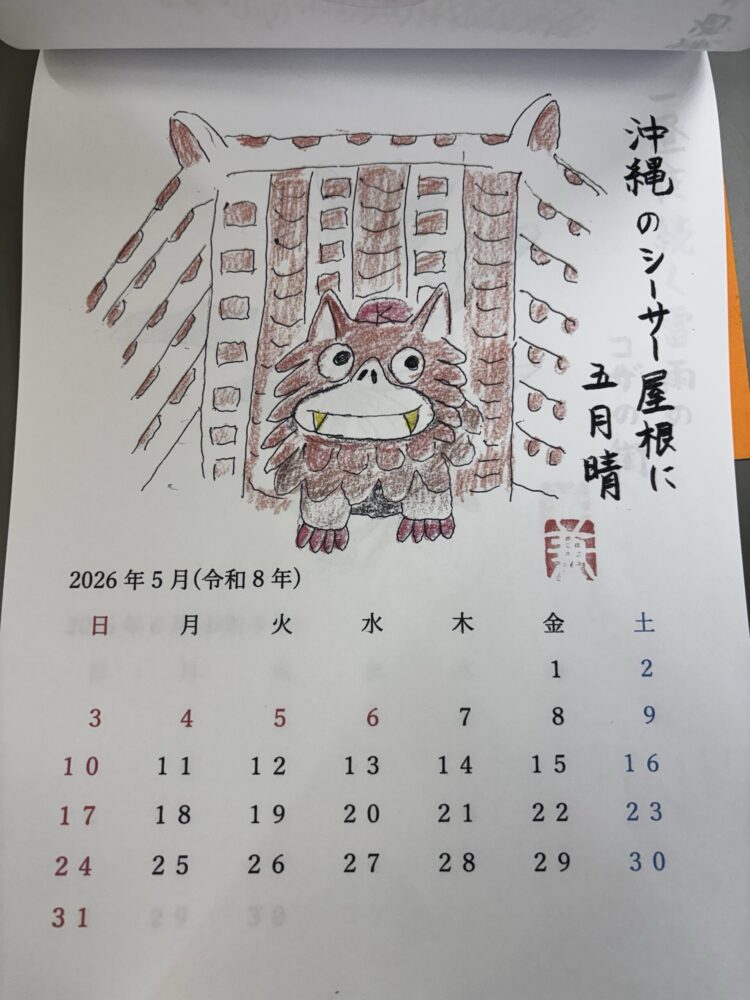 沖縄のシーサー屋根に
五月晴
K
2026年5月(令和8年)
日 月 火 水 木 金 土
1 2
3 4 5 6 7 8 9
10 11 12 13 14 15 16
17 18 19 20 21 22 23
24 25 26 27 28 29 30
31